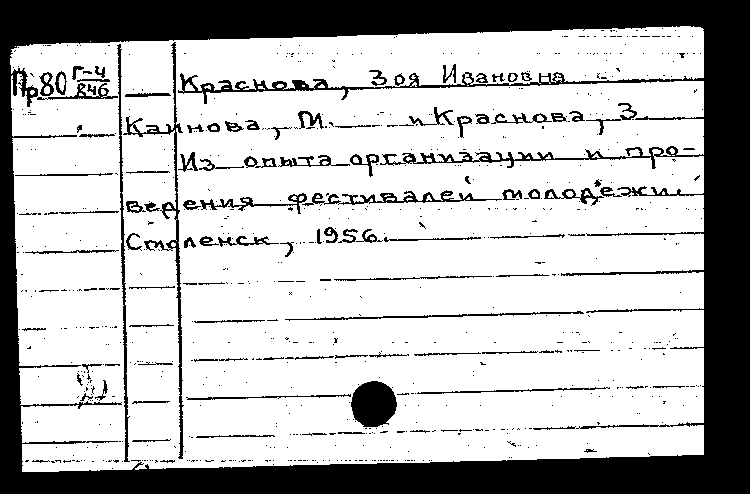 Пр80 Г-4 Краснова, Зоя Ивановна
846
Каинова, М. и Краснова, З.
Из опыта организации и про-
ведения фестивалей молодежи.
Смоленск, 1956.